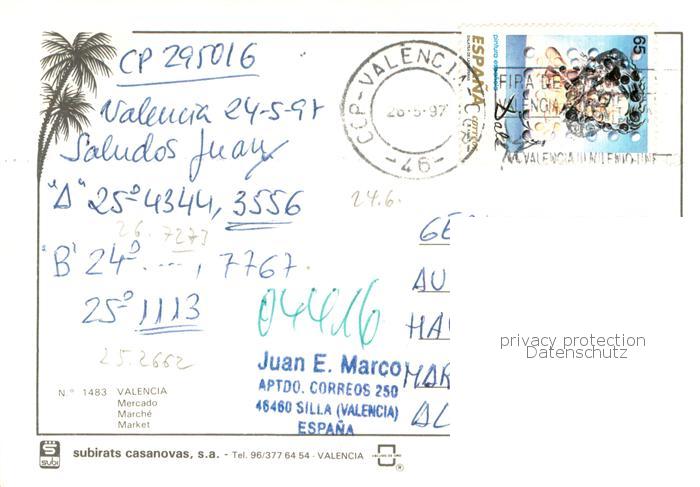 CP 295016
Valencia 24-5-97
Saludos Juan
"A" 25º 4344, 3556
26. 7273
"B" 24º. ---, 7767.
25º 1113
25.2662
24.6.
04416
CCP-VALENCIA
26-5-97
-46-
ESPAÑA
CORREOS
pintura española
65
Dalí
FIRA DE
VALENCIA III MILENIO
GE
AU
HA
MAR
AL
privacy protection
Datenschutz
Juan E. Marco
APTDO. CORREOS 250
46460 SILLA (VALENCIA)
ESPAÑA
N.º 1483 VALENCIA
Mercado
Marché
Market
SUBI
subirats casanovas, s.a. - Tel. 96/377 64 54 - VALENCIA
®